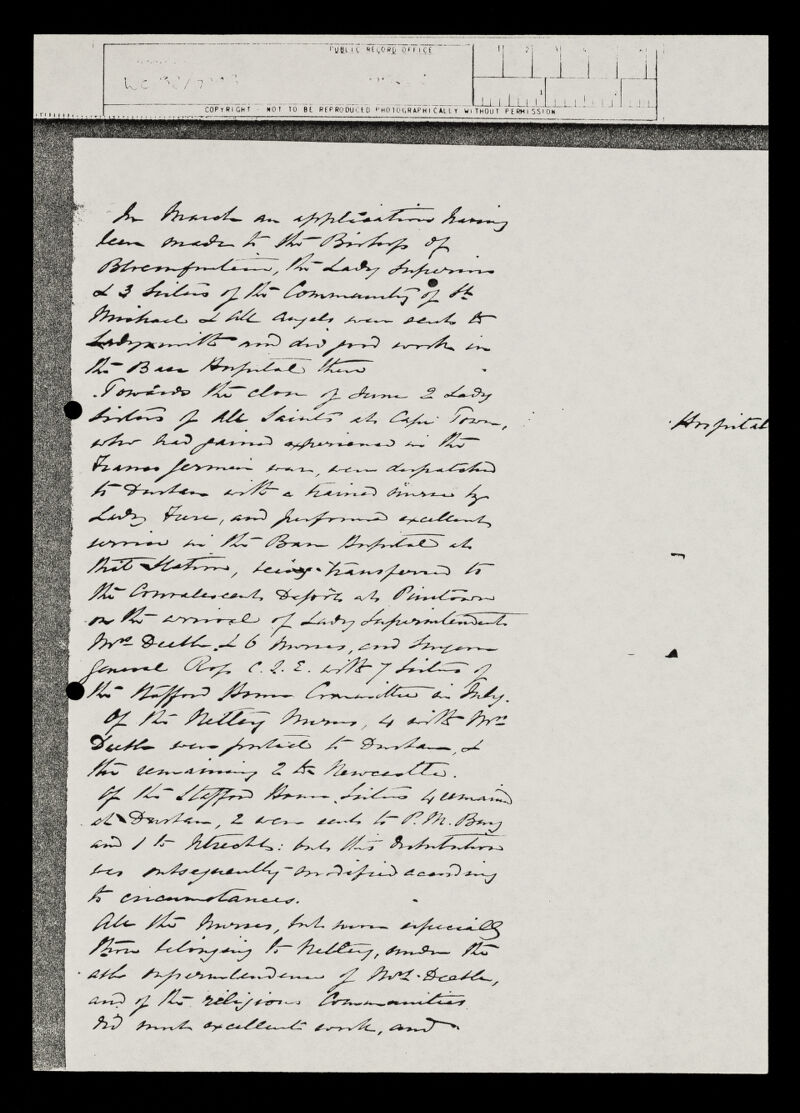 PUBLIC RECORD OFFICE
1 2 3 4 5 6
1 2
COPYRIGHT - NOT TO BE REPRODUCED PHOTOGRAPHICALLY WITHOUT PERMISSION
In March an application having
been made to the Bishop of
Bloemfontein, the Lady Superior
& 3 Sisters of the Community of St
Michael & All Angels were sent to
Ladysmith and did good work in
the Base Hospital there
Towards the close of June 2 Lady
Sisters of All Saints at Cape Town,
who had gained experience in the
Franco German war, were despatched
to Durban with a trained nurse by
Lady Frere, and performed excellent
service in the Base Hospital at
that Station, being transferred to
the Convalescent Depôt at Pinetown
on the arrival of Lady Superintendent
Mrs Deeble & 6 Nurses, and Surgeon
General Ross C.I.E. with 7 Sisters of
the Stafford House Committee in July.
Of the Netley Nurses, 4 with Mrs
Deeble were posted to Durban, &
the remaining 2 to Newcastle.
Of the Stafford House Sisters 4 remained
at Durban, 2 were sent to P.M. Burg
and 1 to Utrecht: but this distribution
was subsequently modified according
to circumstances.
All the Nurses, but more especially
those belonging to Netley, under the
able superintendence of Mrs Deeble,
and of the religious Communities
did much excellent work, and
Hospital